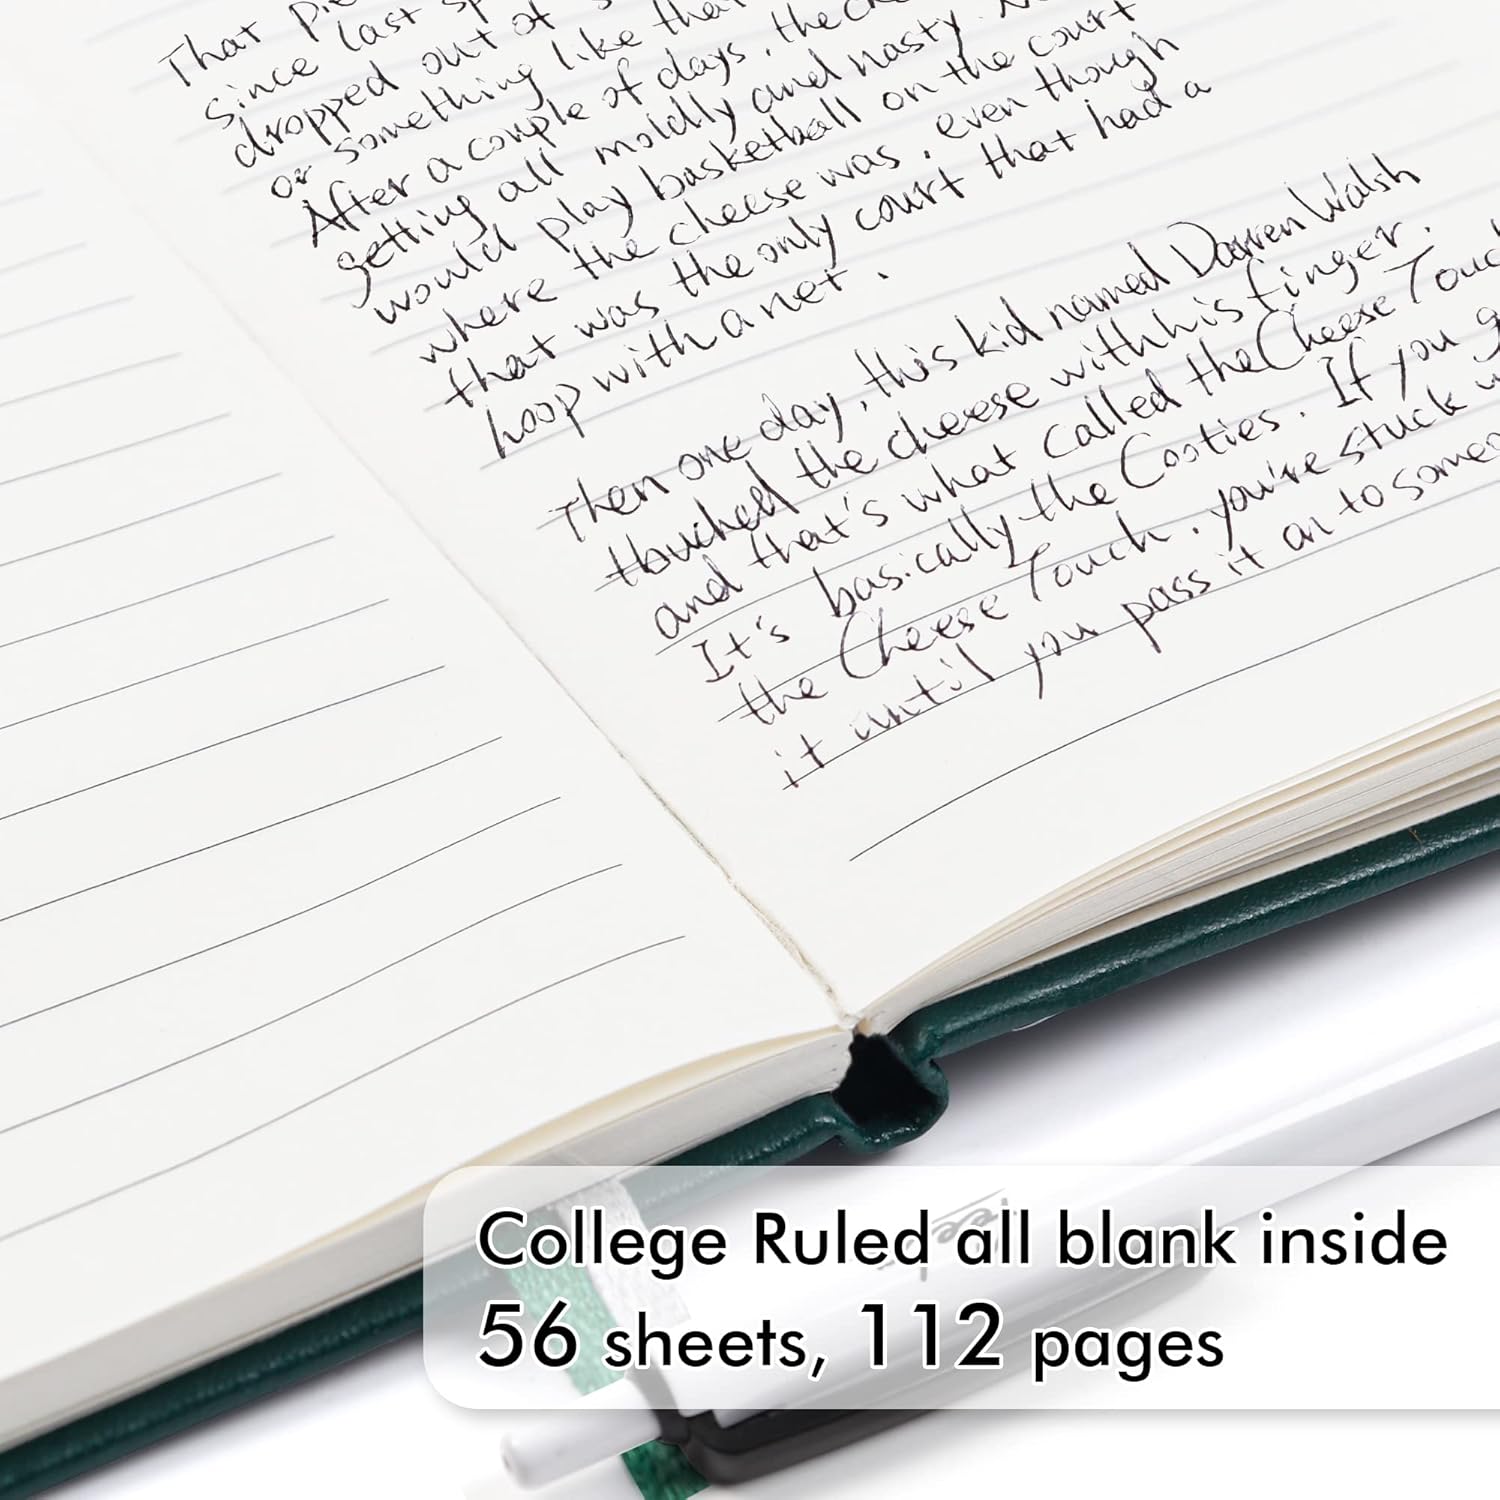 That pie
since last sp
dropped out of s
or something like that
After a couple of days, the che
getting all moldly and nasty. N
would play basketball on the court
where the cheese was, even though
that was the only court that had a
hoop with a net.
Then one day, this kid named Darren Walsh
touched the cheese with his finger.
and that's what called the Cheese Touch
It's basically the Cooties. If you g
the Cheese Touch, you're stuck w
it until you pass it on to someo
College Ruled all blank inside
56 sheets, 112 pages